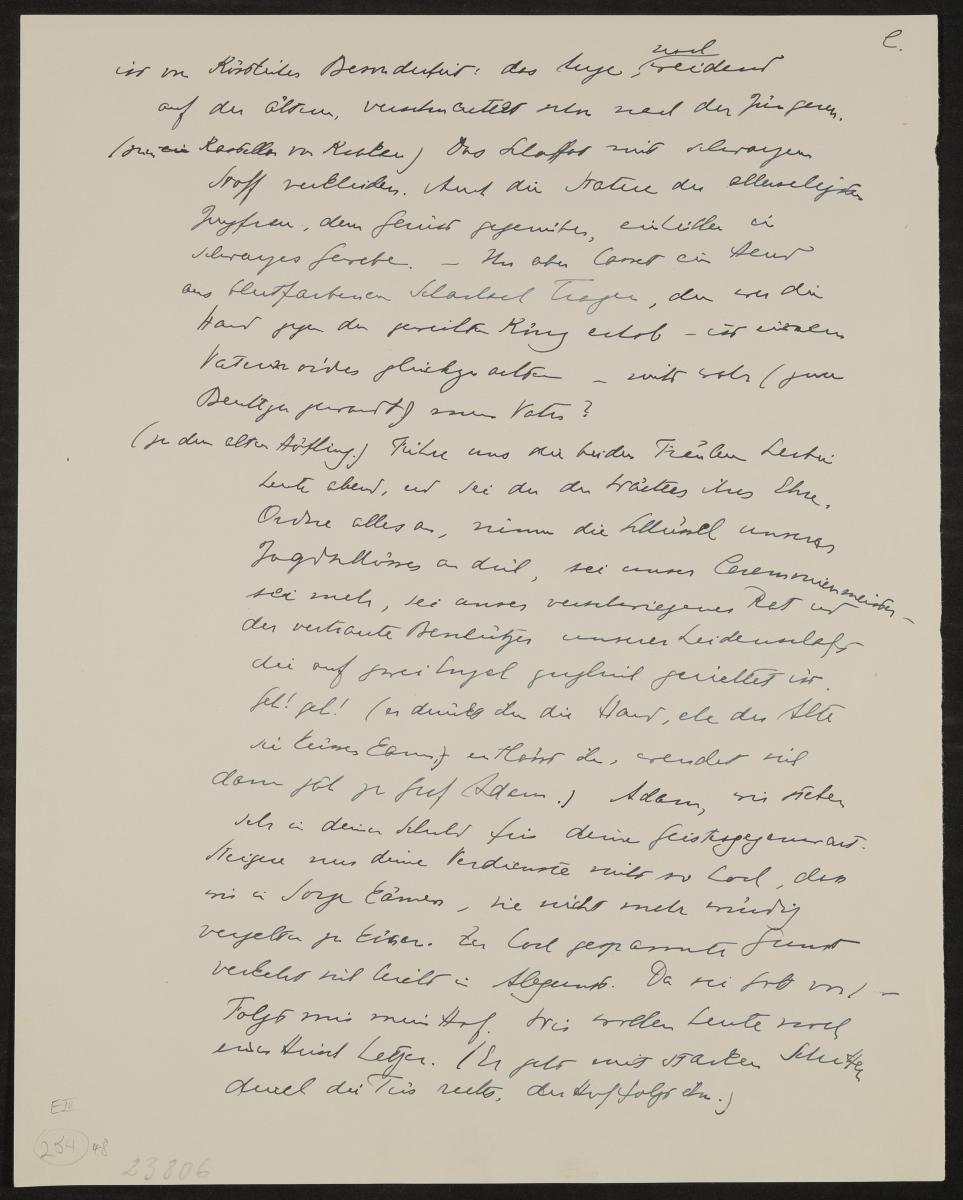 C.
ist von köstlicher Besonderheit: das Auge, noch weidend
auf der ältern, verschmachtet schon nach der Jüngeren.
(zum ein Kastellan von Krakau) Das Schaffot mit schwarzem
Stoff verkleiden. Auch die Statue der allerseligsten
Jungfrau, dem Gerüst gegenüber, einhüllen in
schwarzes Gewebe. – Ihn aber lasset ein Hemd
aus blutfarbenem Scharlach tragen, denn wer die
Hand gegen den geweihten König erhob – ist einem
Vatermörder gleichzuachten – nicht wahr (zum
gewandt) mein Vater?
(zu dem alten Höfling.) Führe uns die beiden Fräulein hierher
heute abend, und sei du der Wächter ihrer Ehre.
Ordne alles an, nimm die Schlüssel unseres
Jagdschlosses an dich, sei unser Ceremonienmeister –
sei mehr, sei unser verschwiegener Rat und
der vertraute Beschützer unserer Leidenschaft
die auf zwei Engel zugleich gerichtet ist.
Geh! geh! (er drückt ihm die Hand, ehe der Alte
sie küssen kann, entlässt ihn, wendet sich
dann jäh zu Graf Adam.) Adam, wir stehen
sehr in deiner Schuld für deine Geistesgegenwart.
Steigere nur deine Verdienste nicht so hoch, dass
wir in Sorge kämen, sie nicht mehr würdig
vergelten zu können. Zu hoch gespannte Gunst
verkehrt sich leicht in Abgunst. Da sei Gott vor! –
Folgt mir mein Hof. Wir wollen heute noch
einen Hirsch hetzen. (Er geht mit starken Schritten
durch die Tür rechts, der Hof folgt ihm.)
E III
254 48
23806